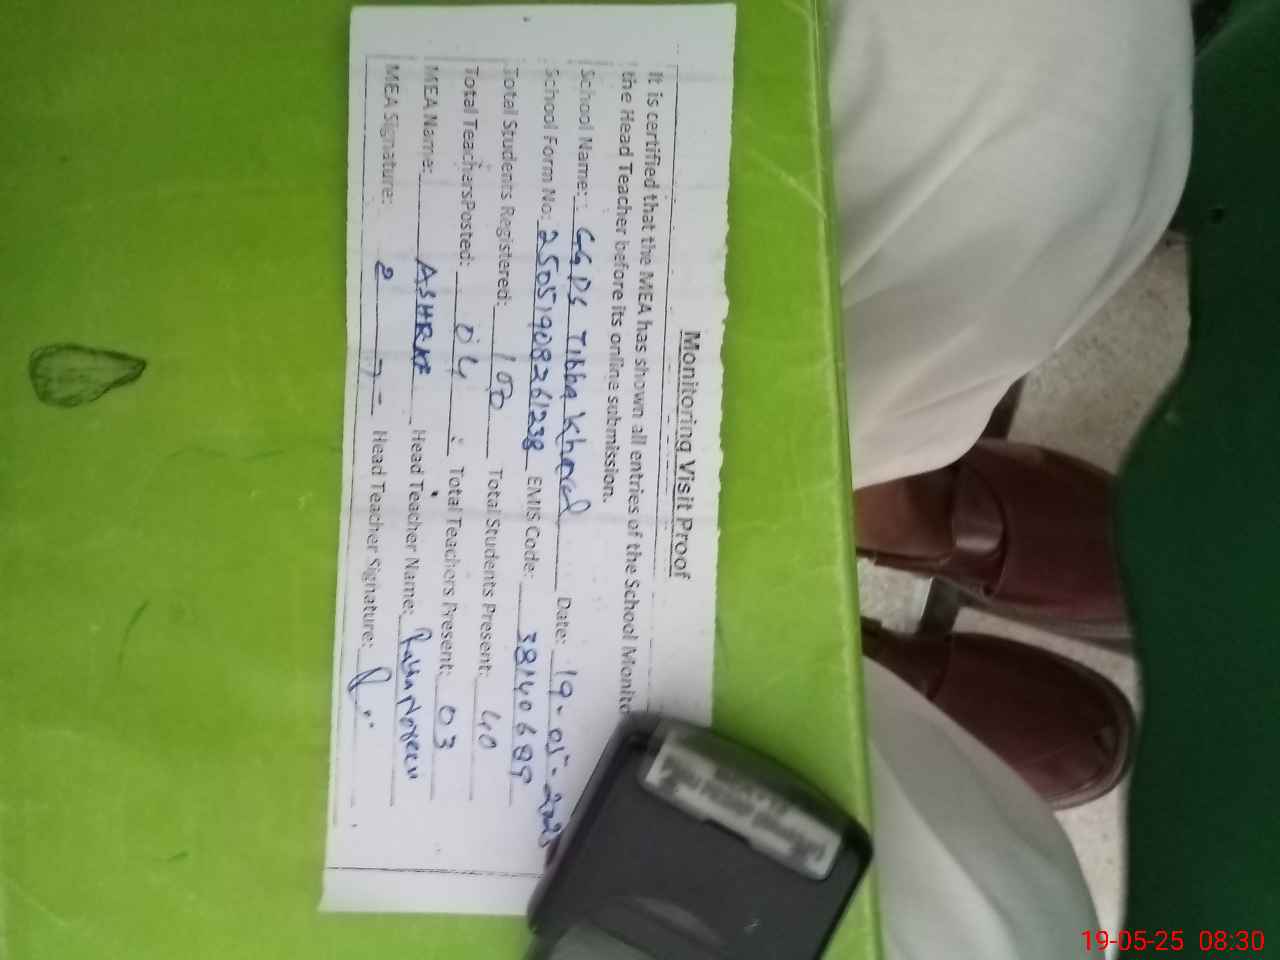 Monitoring Visit Proof
It is certified that the MEA has shown all entries of the School Monito
the Head Teacher before its online submission.
School Name: GGPS Tibba Kharal Date: 19-05-2025
School Form No: 25051908261238 EMIS Code: 38140689
Total Students Registered: 100 Total Students Present: 40
Total TeachersPosted: 04 Total Teachers Present: 03
MEA Name: ASHRAF Head Teacher Name: Noreen
MEA Signature: Head Teacher Signature:
19-05-25 08:30